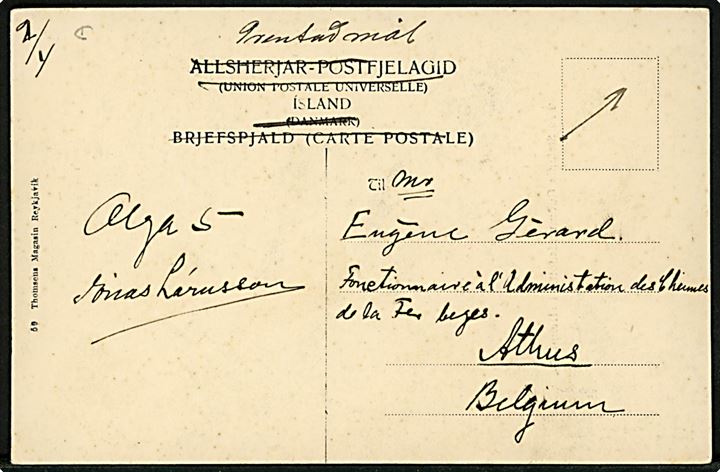 2/4
Prentað mál
ALLSHERJAR-POSTFJELAGID
(UNION POSTALE UNIVERSELLE)
ÍSLAND
(DANMARK)
BRJEFSPJALD (CARTE POSTALE)
Til Mr
Eugène Gérard.
Fonctionnaire à l'Administration des Chemes
de la Fer beges.
Athus
Belgium
Olga 5
Jónas Lárusson
59 Thomsens Magasin Reykjavik